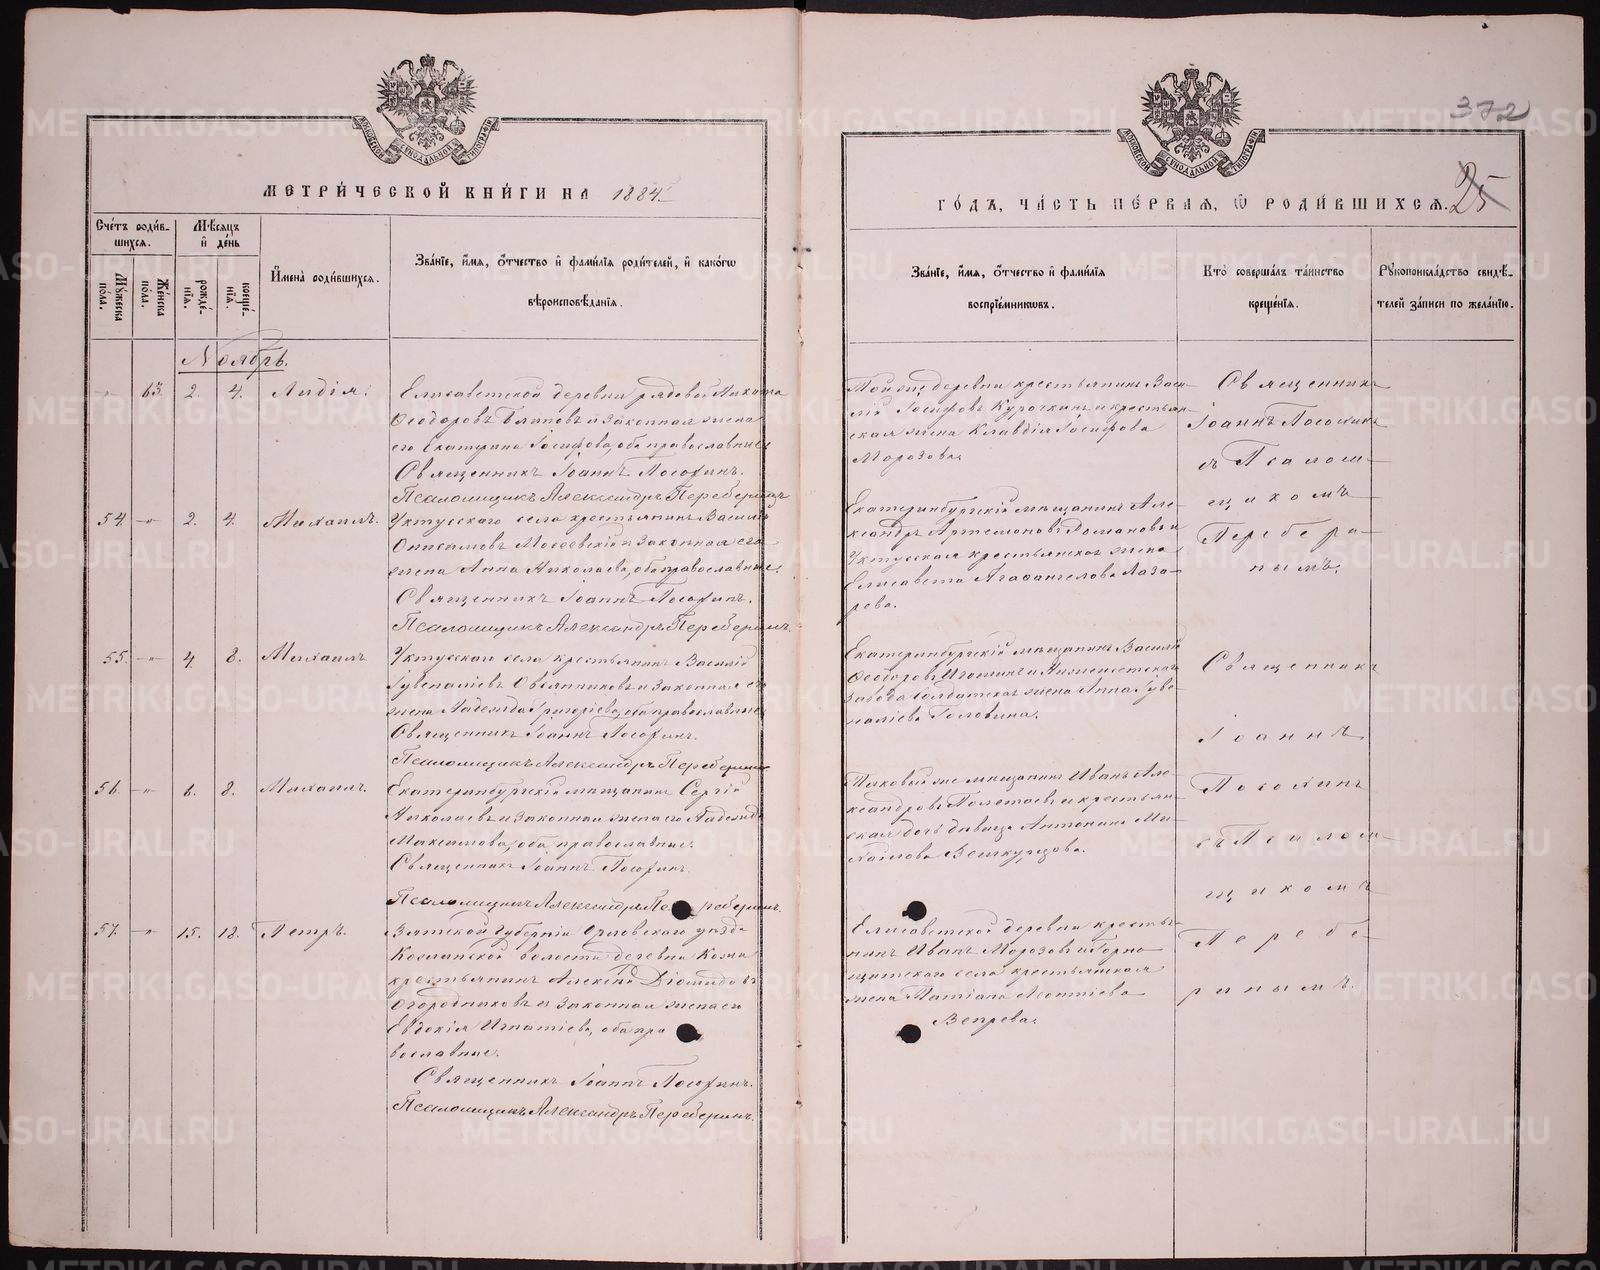 372
25
МОСКОВСКОЙ СѴНОДАЛЬНОЙ ТИПОГРАФІИ
МЕТРИ́ЧЕСКОЙ КНИ́ГИ НА 1884.
ГО́ДЪ, ЧА́СТЬ ПЕ́РВАЯ, Ѡ РОДИ́ВШИХСЯ.
Сче́тъ роди́в-
шихся.
Мѣ́сяцъ
и҆ де́нь
Мꙋ́жеска
по́ла.
Же́нска
по́ла.
рожде́-
нїя.
креще́-
нїя.
И҆мена̀ роди́вшихся.
Зва́нїе, и҆́мя, ѻ҆́тчество и҆ фами́лїя роди́телей, и҆ како́гѡ
вѣроисповѣ́данїя.
Зва́нїе, и҆́мя, ѻ҆́тчество и҆ фами́лїя
воспрїе́мниковъ.
Кто̀ соверша́лъ та́инство
креще́нїя.
Рꙋкоприкла́дство свидѣ́-
телей за́писи по жела́нїю.
Ноябрь.
63. 2. 4. Лидія.
Елисаветской деревни рядовой
Ѳеодоровъ и законная жена
его Екатерина Іосифова, оба православные
Священникъ Іоаннъ Посохинъ.
Псаломщикъ Александръ Переберинъ
Той же деревни крестьянинъ Васи-
лій Іосифовъ Курочкинъ и крестьян-
ская жена Клавдія Іосифова
Морозова
Священникъ
Іоаннъ Посохинъ
съ Псалом-
щикомъ
Перебери-
нымъ.
54. -"- 2. 4. Михаилъ.
Уктусскаго села крестьянинъ Василій
Онисимовъ и законная его
жена Анна Николаева, оба православные.
Священникъ Іоаннъ Посохинъ.
Псаломщикъ Александръ Переберинъ.
Екатеринбургскій мѣщанинъ Але-
ксандръ Артемоновъ Романовъ и
Уктусская крестьянская жена
Елисавета Агаѳангелова Лаза-
рева.
55. -"- 4. 8. Михаилъ
Уктусскаго села крестьянинъ Василій
Іувеналіевъ Овсянниковъ и законная его
жена Надежда Григоріева, оба православные
Священникъ Іоаннъ Посохинъ.
Псаломщикъ Александръ Переберинъ
Екатеринбургскій мѣщанинъ Василій
Ѳеодоровъ и Нижнеисетскаго
завода солдатская жена Анна Іуве-
наліева Головина.
Священникъ
Іоаннъ
Посохинъ
съ Псалом-
щикомъ
Перебе-
ринымъ.
56. -"- 6. 8. Михаилъ.
Екатеринбургскій мѣщанинъ Сергій
Николаевъ и законная жена его Надежда
Максимова, оба православные.
Священникъ Іоаннъ Посохинъ.
Псаломщикъ Александръ Переберинъ.
Таковый же мѣщанинъ Иванъ Але-
ксандровъ Полетаевъ и крестьян-
ская дочь девица Антонина Ми-
хайлова
57. -"- 15. 18. Петръ.
Вятской губерніи Орловскаго уѣзда
волости деревни
крестьянинъ Алексій Діомидовъ
Огородниковъ и законная жена его
Евдокія Игнатіева, оба пра
вославные.
Священникъ Іоаннъ Посохинъ.
Псаломщикъ Александръ Переберинъ.
Елисаветской деревни крестья-
нинъ Иванъ Морозовъ и Горно
щитскаго села крестьянская
жена Татіана Леонтіева
Вепрева
METRIKI.GASO-URAL.RU